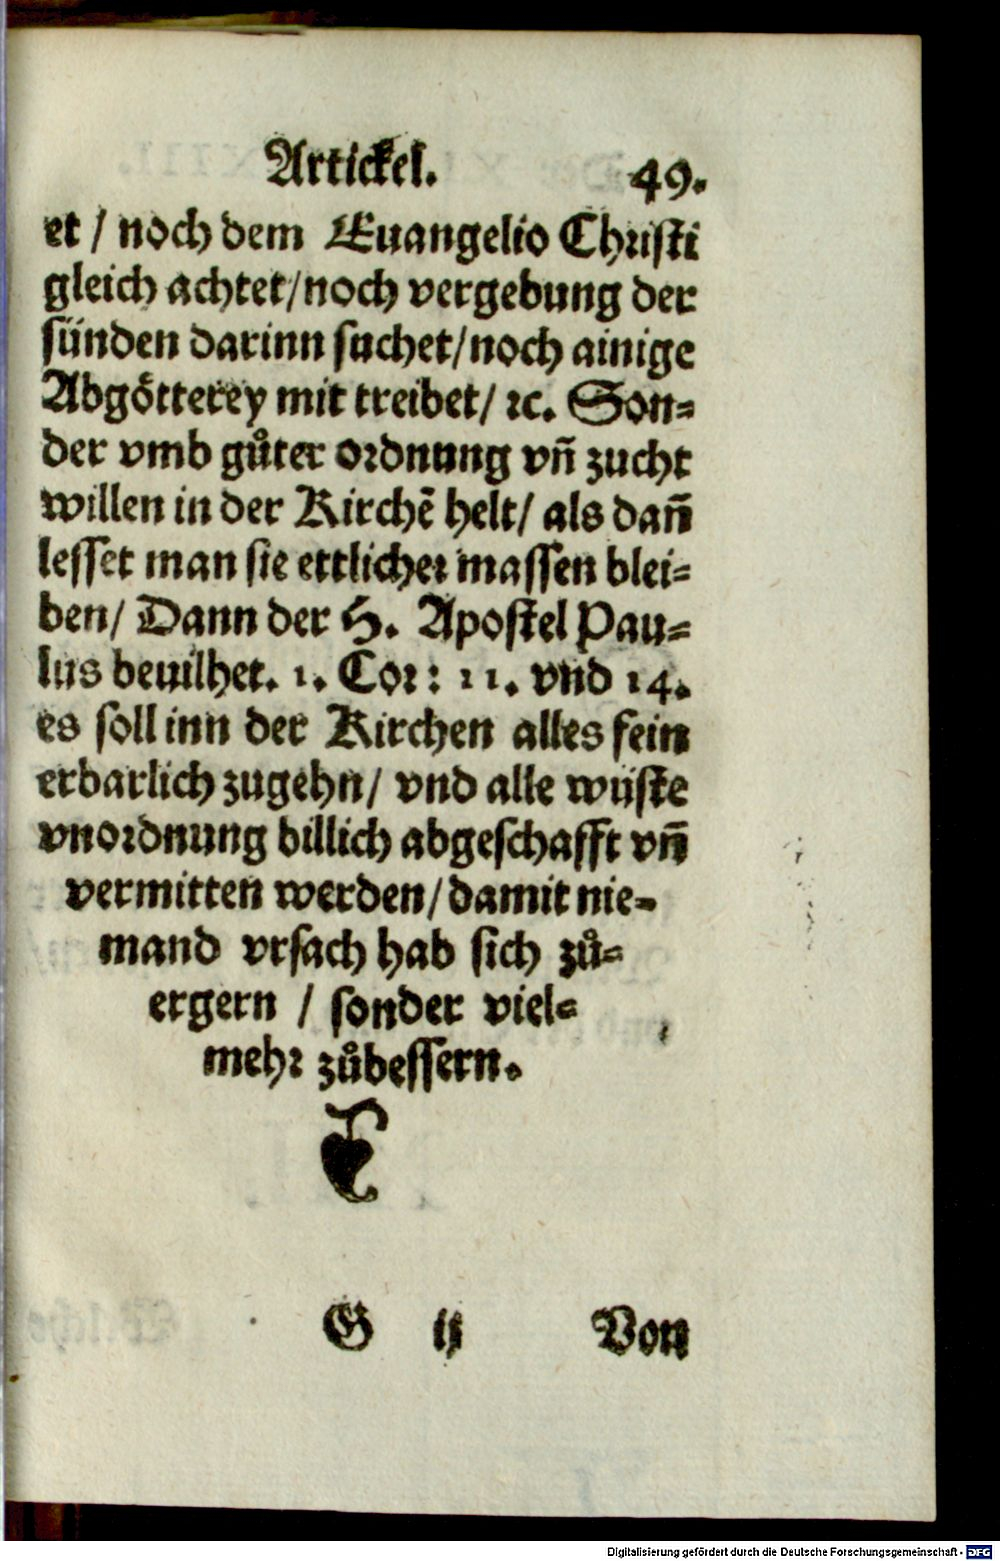 Artickel. 49.
et / noch dem Euangelio Christi
gleich achtet/noch vergebung der
sünden darinn suchet/noch ainige
Abgötterey mit treibet/ ꝛc. Son⸗
der vmb gůter ordnung vñ zucht
willen in der Kirchẽ helt/ als dañ
lesset man sie ettlicher massen blei⸗
ben/ Dann der H. Apostel Pau⸗
lus beuilhet. 1. Cor: 11. vnd 14.
es soll inn der Kirchen alles fein
erbarlich zugehn/ vnd alle wüste
vnordnung billich abgeschafft vñ
vermitten werden/damit nie⸗
mand vrsach hab sich zů⸗
ergern / sonder viel⸗
mehr zůbessern.
G ij Von
Digitalisierung gefördert durch die Deutsche Forschungsgemeinschaft - DFG